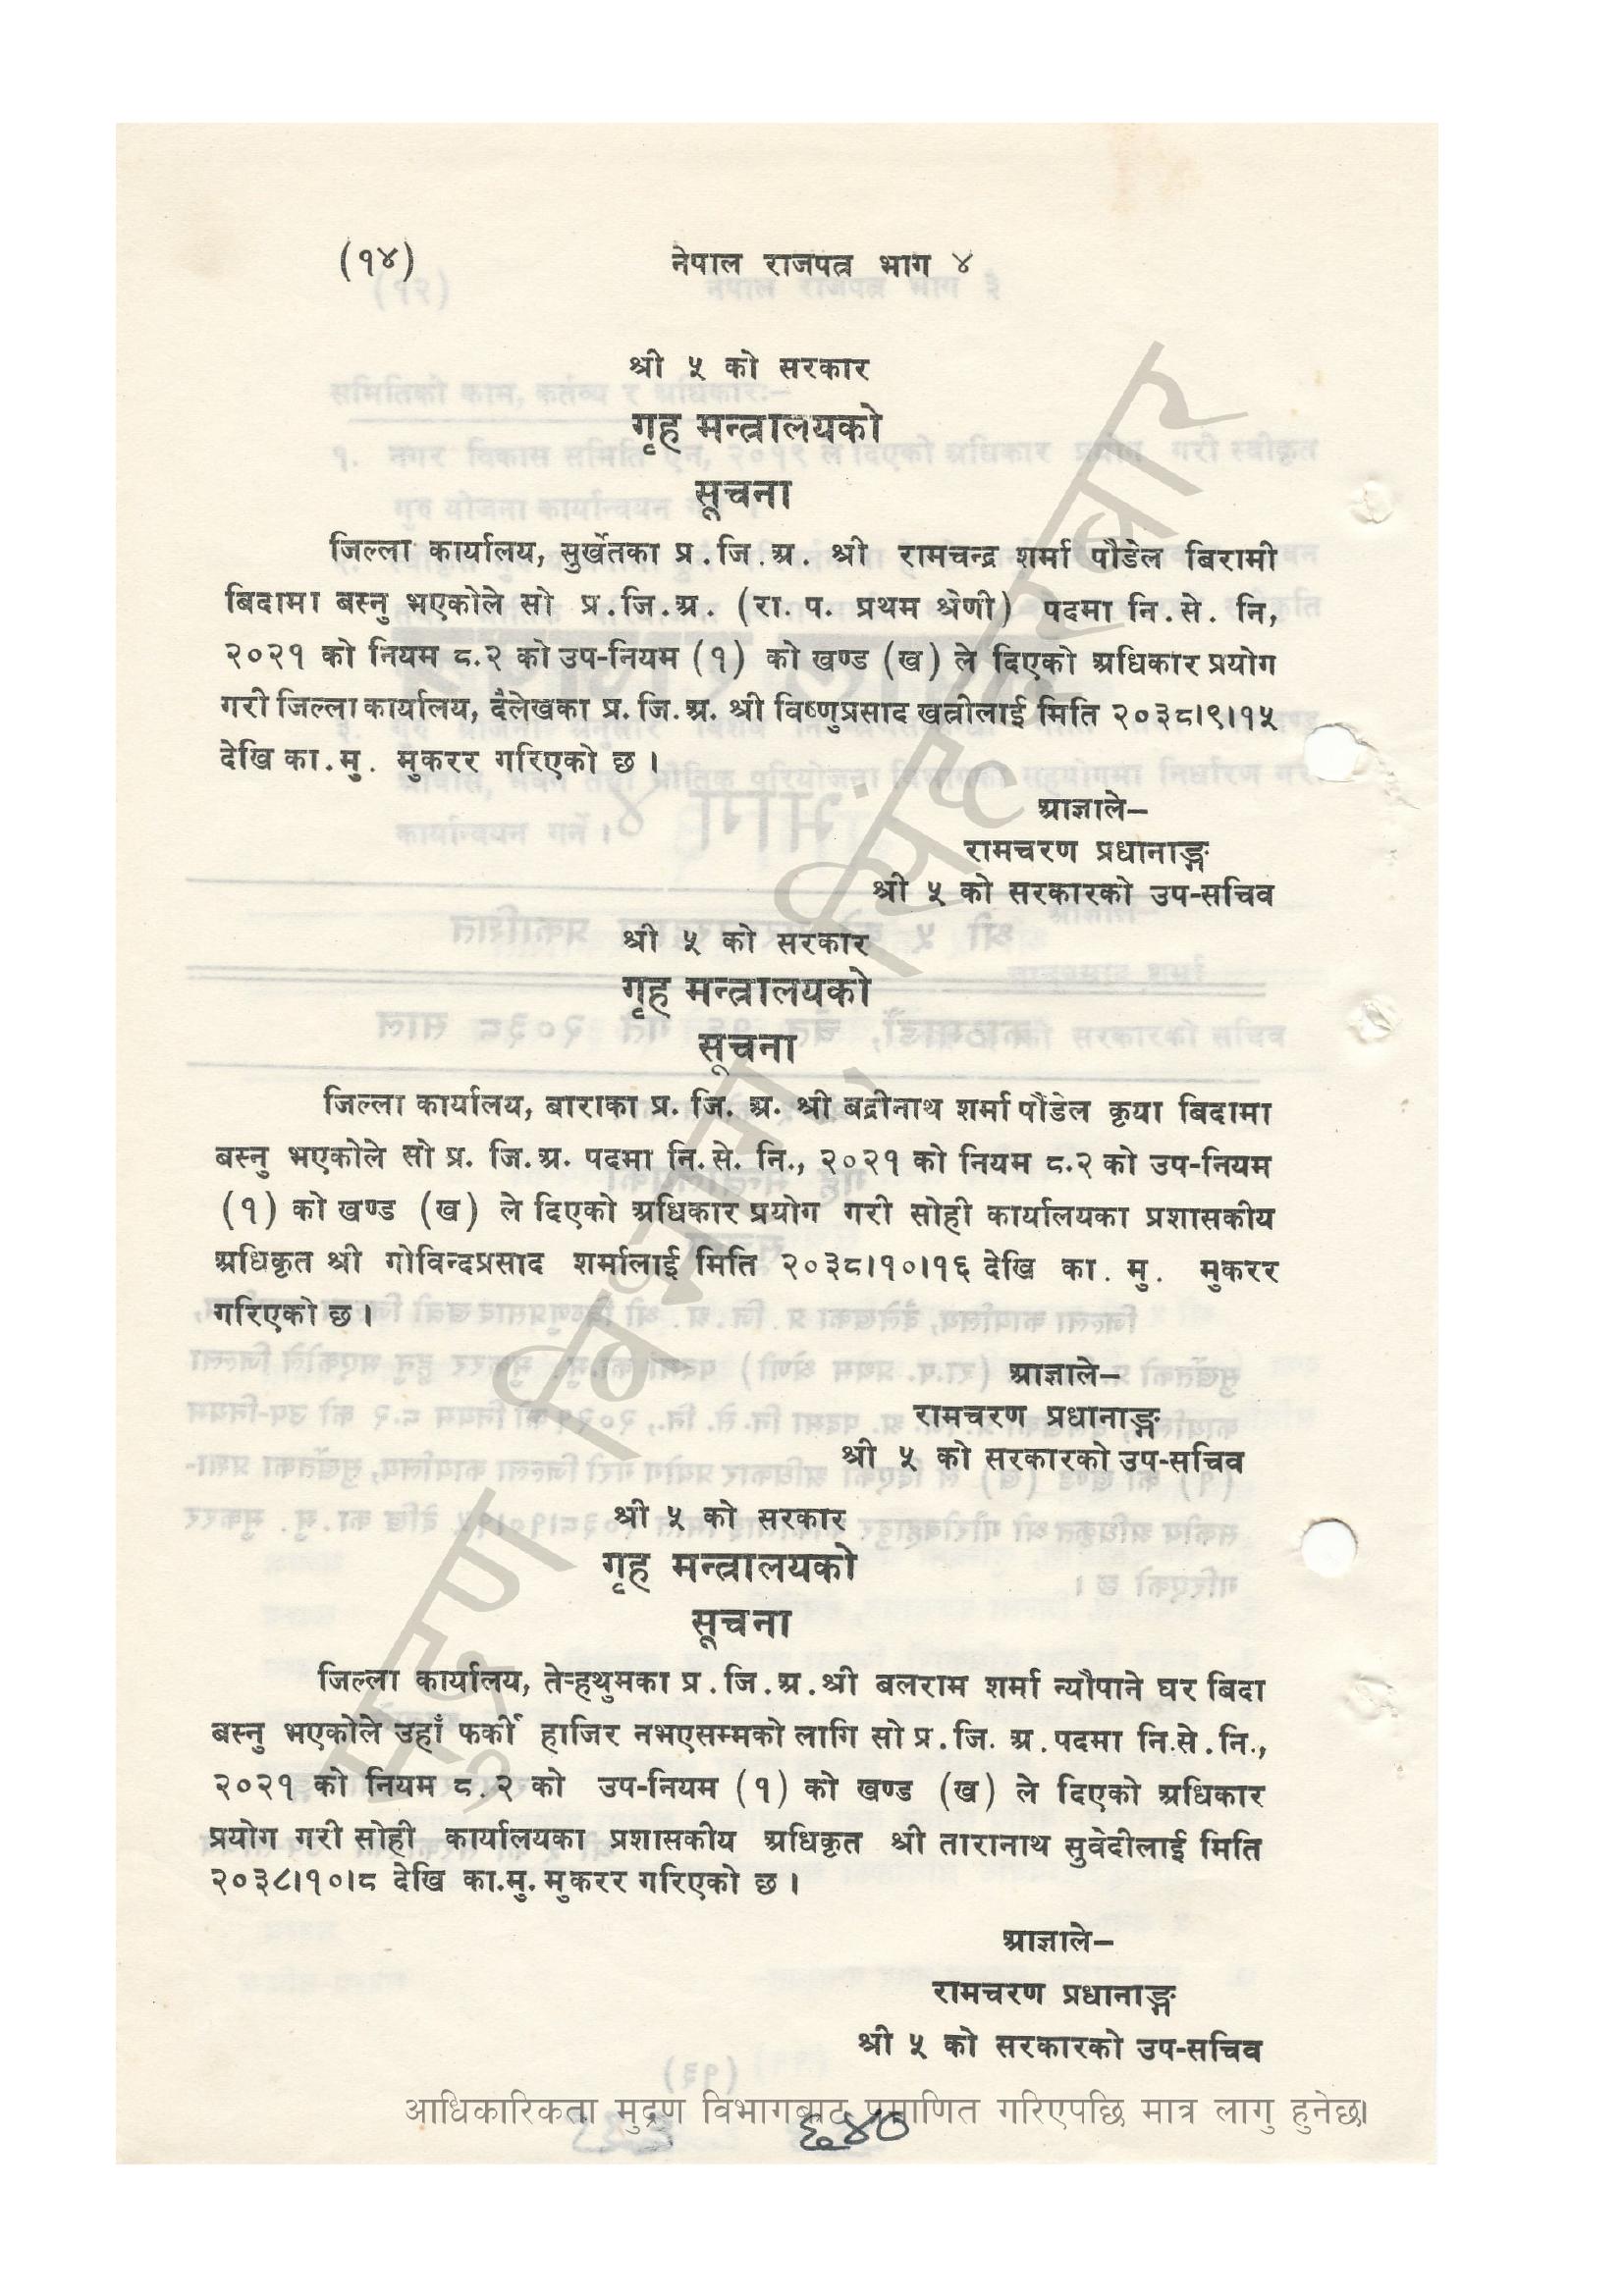 (१४) नेपाल राजपत्र भाग ४
श्री ५ को सरकार
गृह मन्त्रालयको
सूचना
जिल्ला कार्यालय, सुर्खेतका प्र.जि.अ. श्री रामचन्द्र शर्मा पौडेल बिरामी
बिदामा बस्नु भएकोले सो प्र.जि.अ. (रा.प. प्रथम श्रेणी) पदमा नि.से. नि,
२०२१ को नियम ८.२ को उप-नियम (१) को खण्ड (ख) ले दिएको अधिकार प्रयोग
गरी जिल्ला कार्यालय, दैलेखका प्र. जि.अ. श्री विष्णुप्रसाद खत्रीलाई मिति २०३८।९।१५
देखि का.मु. मुकरर गरिएको छ।
आज्ञाले–
रामचरण प्रधानाङ्ग
श्री ५ को सरकारको उप-सचिव
श्री ५ को सरकार
गृह मन्त्रालयको
सूचना
जिल्ला कार्यालय, बाराका प्र. जि. अ. श्री बद्रीनाथ शर्मा पौडेल कृया बिदामा
बस्नु भएकोले सो प्र. जि.अ. पदमा नि.से. नि., २०२१ को नियम ८.२ को उप-नियम
(१) को खण्ड (ख) ले दिएको अधिकार प्रयोग गरी सोही कार्यालयका प्रशासकीय
अधिकृत श्री गोविन्दप्रसाद शर्मालाई मिति २०३८।१०।१६ देखि का. मु. मुकरर
गरिएको छ।
आज्ञाले–
रामचरण प्रधानाङ्ग
श्री ५ को सरकारको उप-सचिव
श्री ५ को सरकार
गृह मन्त्रालयको
सूचना
जिल्ला कार्यालय, ते-हथुमका प्र.जि.अ.श्री बलराम शर्मा न्यौपाने घर बिदा
बस्नु भएकोले उहाँ फर्की हाजिर नभएसम्मको लागि सो प्र.जि. अ.पदमा नि.से.नि.,
२०२१ को नियम ८.२ को उप-नियम (१) को खण्ड (ख) ले दिएको अधिकार
प्रयोग गरी सोही कार्यालयका प्रशासकीय अधिकृत श्री तारानाथ सुवेदीलाई मिति
२०३८।१०।८ देखि का.मु. मुकरर गरिएको छ।
आज्ञाले–
रामचरण प्रधानाङ्ग
श्री ५ को सरकारको उप-सचिव
आधिकारिकता मुद्रण विभागबाट प्रमाणित गरिएपछि मात्र लागु हुनेछ।
६४०
मुद्रण विभाग, सिंहदरबार